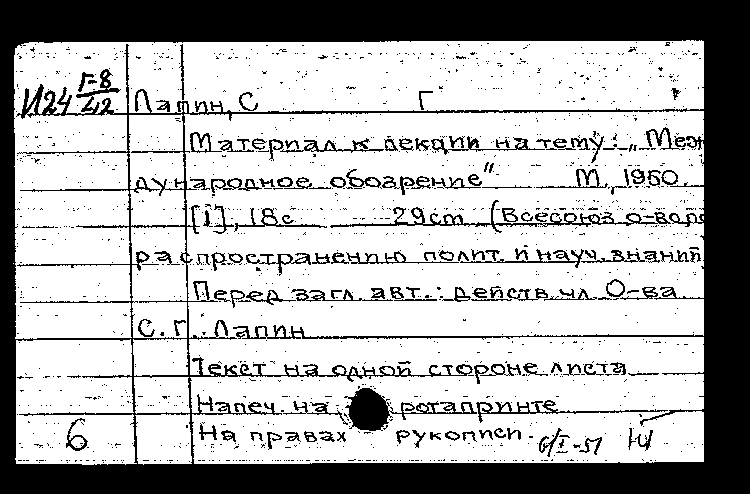 И24 Г-8/42 Лапин, С Г
Материал к лекции на тему: „Меж
дународное обозрение" М., 1950.
[1], 18с 29cm (Всесоюз о-во по
распространению полит. и науч. знаний)
Перед загл. авт.: действ. чл. О-ва
С. Г. Лапин
Текст на одной стороне листа
Напеч. на ротапринте
6 На правах рукописи. 6/I-51